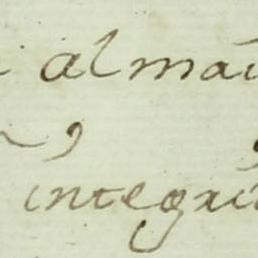 almai
integri